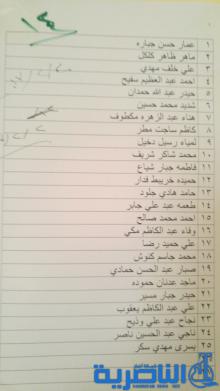 ١ عمار حسن جباره
٢ ماهر ظاهر كلكل
٣ علي خلف مهدي
٤ احمد عبد العظيم سفيح
٥ حيدر عبد الله حمدان
٦ شديد محمد حسين
٧ هناء عبد الزهره مكطوف
٨ كاظم ساجت مطر
٩ لمياء رسيل دخيل
١٠ محمد شاكر شريف
١١ فاطمه جبار شياع
١٢ حميده خريبط فدار
١٣ حامد هادي جلود
١٤ طعمه عبد علي جابر
١٥ احمد محمد صالح
١٦ وفاء عبد الكاظم مكي
١٧ علي حميد رضا
١٨ محمد جاسم كنوش
١٩ صبار عبد الحسن حمادي
٢٠ ماجد عدنان حموده
٢١ حيدر جبار مسير
٢٢ علي عبد الكاظم يعقوب
٢٣ نجاح عبد علي وذيح
٢٤ ناجي عبد الحسين ناصر
٢٥ يسرى مهدي سكر
الناصرية